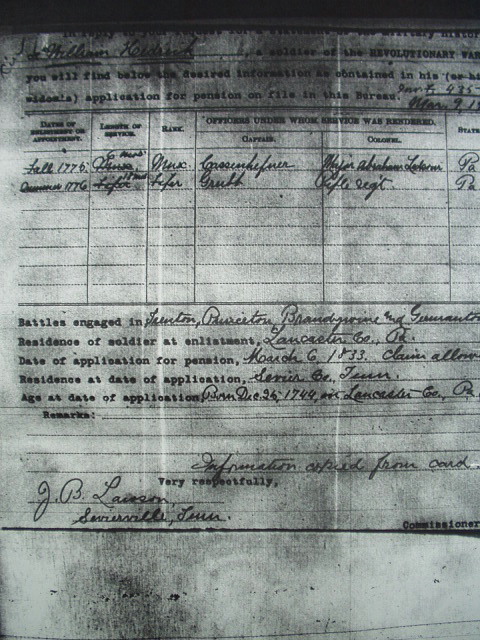 William Hedrick, a soldier of the REVOLUTIONARY WAR
you will find below the desired information as contained in his (or his
widow's) application for pension on file in this Bureau.
DATES OF ENLISTMENT OR APPOINTMENT. LENGTH OF SERVICE. RANK. OFFICERS UNDER WHOM SERVICE WAS RENDERED. STATE
CAPTAIN. COLONEL.
Fall 1775 Major Abraham Pa
Summer 1776 Fifer Grubb Rifle regt Pa
Battles engaged in, Trenton, Princeton Brandywine and Germantown
Residence of soldier at enlistment, Lancaster Co., Pa.
Date of application for pension, March 6, 1833. Claim allow
Residence at date of application, Sevier Co., Tenn.
Age at date of application, Born Dec. 26, 1744, in Lancaster Co., Pa
Remarks:
Information copied from card.
Very respectfully,
J. B. Lawson
Sevierville, Tenn.
Commissioner